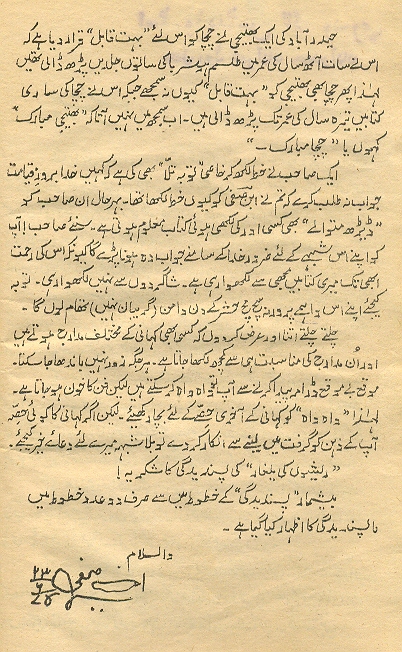 حیدر آباد کی ایک بھتیجی نے چچا کو اس لئے "بہت قابل" قرار دیا ہے کہ
اس نے سات آٹھ سال کی عمر میں طلسم ہوشربا کی ساتوں جلدیں پڑھ ڈالی تھیں
لہٰذا پھر چچا بھی بھتیجی کو "بہت قابل" کیوں نہ سمجھے جبکہ اس نے چچا کی ساری
کتابیں تیرہ سال کی عمر تک پڑھ ڈالی ہیں۔ اب سمجھ میں نہیں آتا کہ "بھتیجی مبارک"
کہوں یا "چچا مبارک ۔۔"
ایک صاحب نے خط لکھ کر خاصی "توبہ تلّا" بھی کی ہے کہ کہیں خدا بروزِ قیامت
جواب نہ طلب کرے کہ تم نے ابن صفی کو کیوں خط لکھا تھا۔ بہرحال ان صاحب کو
"ڈیڑھ متوالے" بھی کسی اور کی لکھی ہوئی کتاب معلوم ہوتی ہے۔ سنئے صاحب! آپ
کو اپنے اس شبہے کے لئے ضرور خدا کے سامنے جواب دہ ہونا پڑے گا کیونکہ اس کی رحمت
ابھی تک میری کتابیں مجھی سے لکھوا رہی ہے۔ شاگردوں سے نہیں لکھوا رہی۔ توبہ
کیجئے اپنے اس واہمے پر ورنہ سچ مچ حشر کے دن دامن (گریبان نہیں) تھام لوں گا۔
چلتے چلتے اتنا اور عرض کر دوں کہ کسی بھی کہانی کے مختلف مدارج ہوتے ہیں
اور اُن مدارج کی مناسبت ہی سے کچھ لکھا جاتا ہے۔ ہر جگہ زور نہیں باندھا جا سکتا۔
موقع بے موقع ڈرامہ پیدا کر لینے سے آپ تو واہ واہ کر سکتے ہیں لیکن فن کا خون ہو جاتا ہے۔
لہٰذا "واہ واہ" کو کہانی کے آخری حصّہ کے لئے بچا رکھئے۔ لیکن اگر کہانی کا کوئی حصّہ
آپ کے ذہن کو گرفت میں لینے سے انکار کر دے تو بلا شبہہ میرے لئے دعائے خیر کیجئے۔
"ریشوں کی یلغار" کی پسندیدگی کا شکریہ!
بیشمار "پسندیدگی" کے خطوط میں سے صرف دو عدد خطوط میں
ناپسندیدگی کا اظہار کیا گیا ہے۔
والسلام
ابن صفی